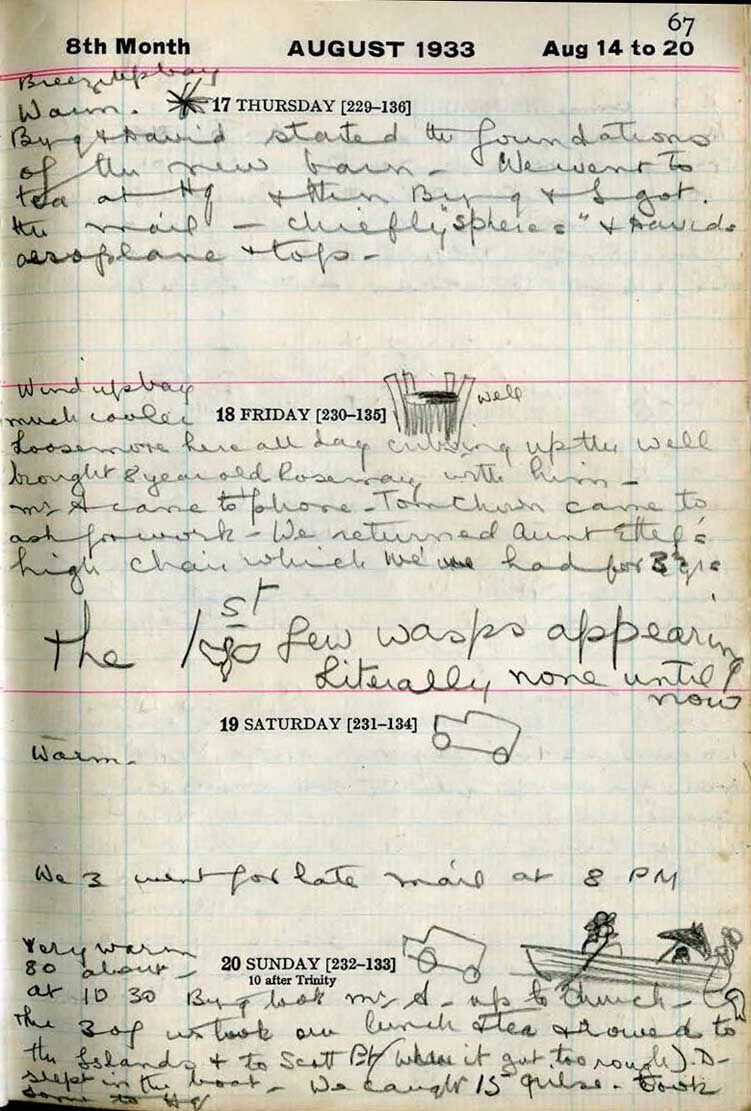 67
8th Month AUGUST 1933 Aug 14 to 20
Breeze up bay
Warm. 17 THURSDAY [229–136]
Byng & David stated the foundations
of the new barn - We went to
tea at Hq & then Byng & I got.
the mail - chiefly "spheres" & Davids
aeroplane & tops -
Wind up bay
much cooler 18 FRIDAY [230–135] well
Loosemore here all day cribbing up the well
brought 8 year old Rosemary with him -
Mrs A came to 'phone - Tom Chum came to
ask for work - We returned Aunt Effef's
high chair which we've had for 3 yrs
the 1st few wasps appearing
Literally none until
now
19 SATURDAY [231–134]
Warm -
We 3 went for late mail at 8 PM
Very warm
80 about - 20 SUNDAY [232–133]
10 after Trinity
at 10 30 Byng took Mrs A - up to Church -
the 3 of us took our lunch & tea & rowed to
the Islands & to Scott Pt (when it got too rough). D -
slept in the boat - We caught 15 - took
some to Hq